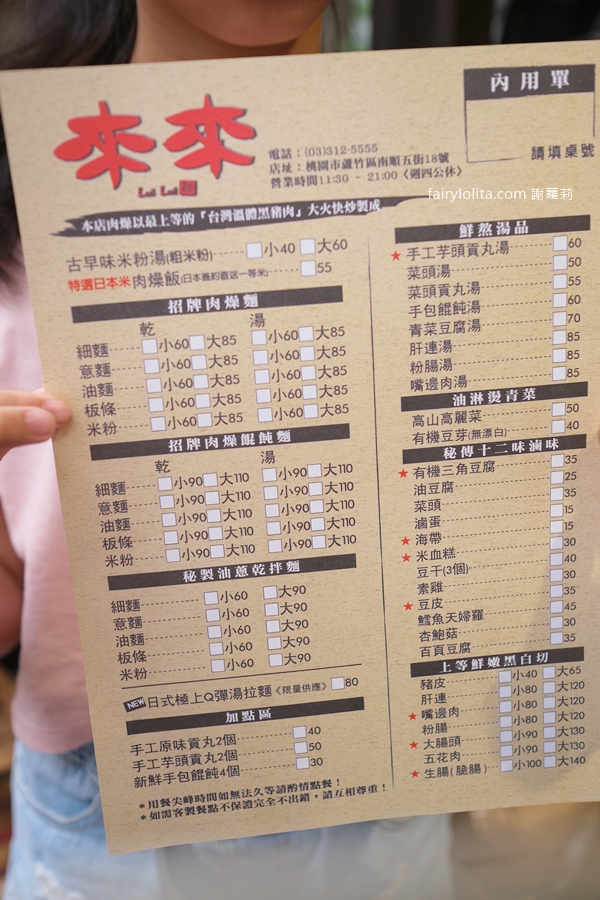 來來
Lai Lai
內用單
請填桌號
電話：(03)312-5555
店址：桃園市蘆竹區南順五街18號
營業時間11:30 ~ 21:00〈週四公休〉
fairylolita.com 謝蘿莉
本店肉燥以最上等的『台灣溫體黑豬肉』大火快炒製成
古早味米粉湯(粗米粉) 小40 大60
特選日本米肉燥飯(日本簽約直送一等米) 55
招牌肉燥麵
乾 湯
細麵 小60 大85 小60 大85
意麵 小60 大85 小60 大85
油麵 小60 大85 小60 大85
板條 小60 大85 小60 大85
米粉 小60 大85 小60 大85
招牌肉燥餛飩麵
乾 湯
細麵 小90 大110 小90 大110
意麵 小90 大110 小90 大110
油麵 小90 大110 小90 大110
板條 小90 大110 小90 大110
米粉 小90 大110 小90 大110
秘製油蔥乾拌麵
細麵 小60 大90
意麵 小60 大90
油麵 小60 大90
板條 小60 大90
米粉 小60 大90
NEW 日式極上Q彈湯拉麵《限量供應》 80
加點區
手工原味貢丸2個 40
手工芋頭貢丸2個 50
新鮮手包餛飩4個 30
＊用餐尖峰時間如無法久等請酌情點餐！
＊如需客製餐點不保證完全不出錯，請互相尊重！
鮮熬湯品
★ 手工芋頭貢丸湯 60
菜頭湯 50
菜頭貢丸湯 55
手包餛飩湯 60
青菜豆腐湯 70
肝連湯 85
粉腸湯 85
嘴邊肉湯 85
油淋燙青菜
高山高麗菜 50
有機豆芽(無漂白) 40
秘傳十二味滷味
★ 有機三角豆腐 35
油豆腐 25
菜頭 35
滷蛋 15
★ 海帶 15
★ 米血糕 30
豆干(3個) 40
素雞 30
★ 豆皮 35
鱈魚天婦羅 45
杏鮑菇 30
百頁豆腐 35
上等鮮嫩黑白切
豬皮 小40 大65
肝連 小80 大120
★ 嘴邊肉 小80 大120
粉腸 小80 大120
★ 大腸頭 小90 大130
五花肉 小90 大130
★ 生腸(脆腸) 小100 大140